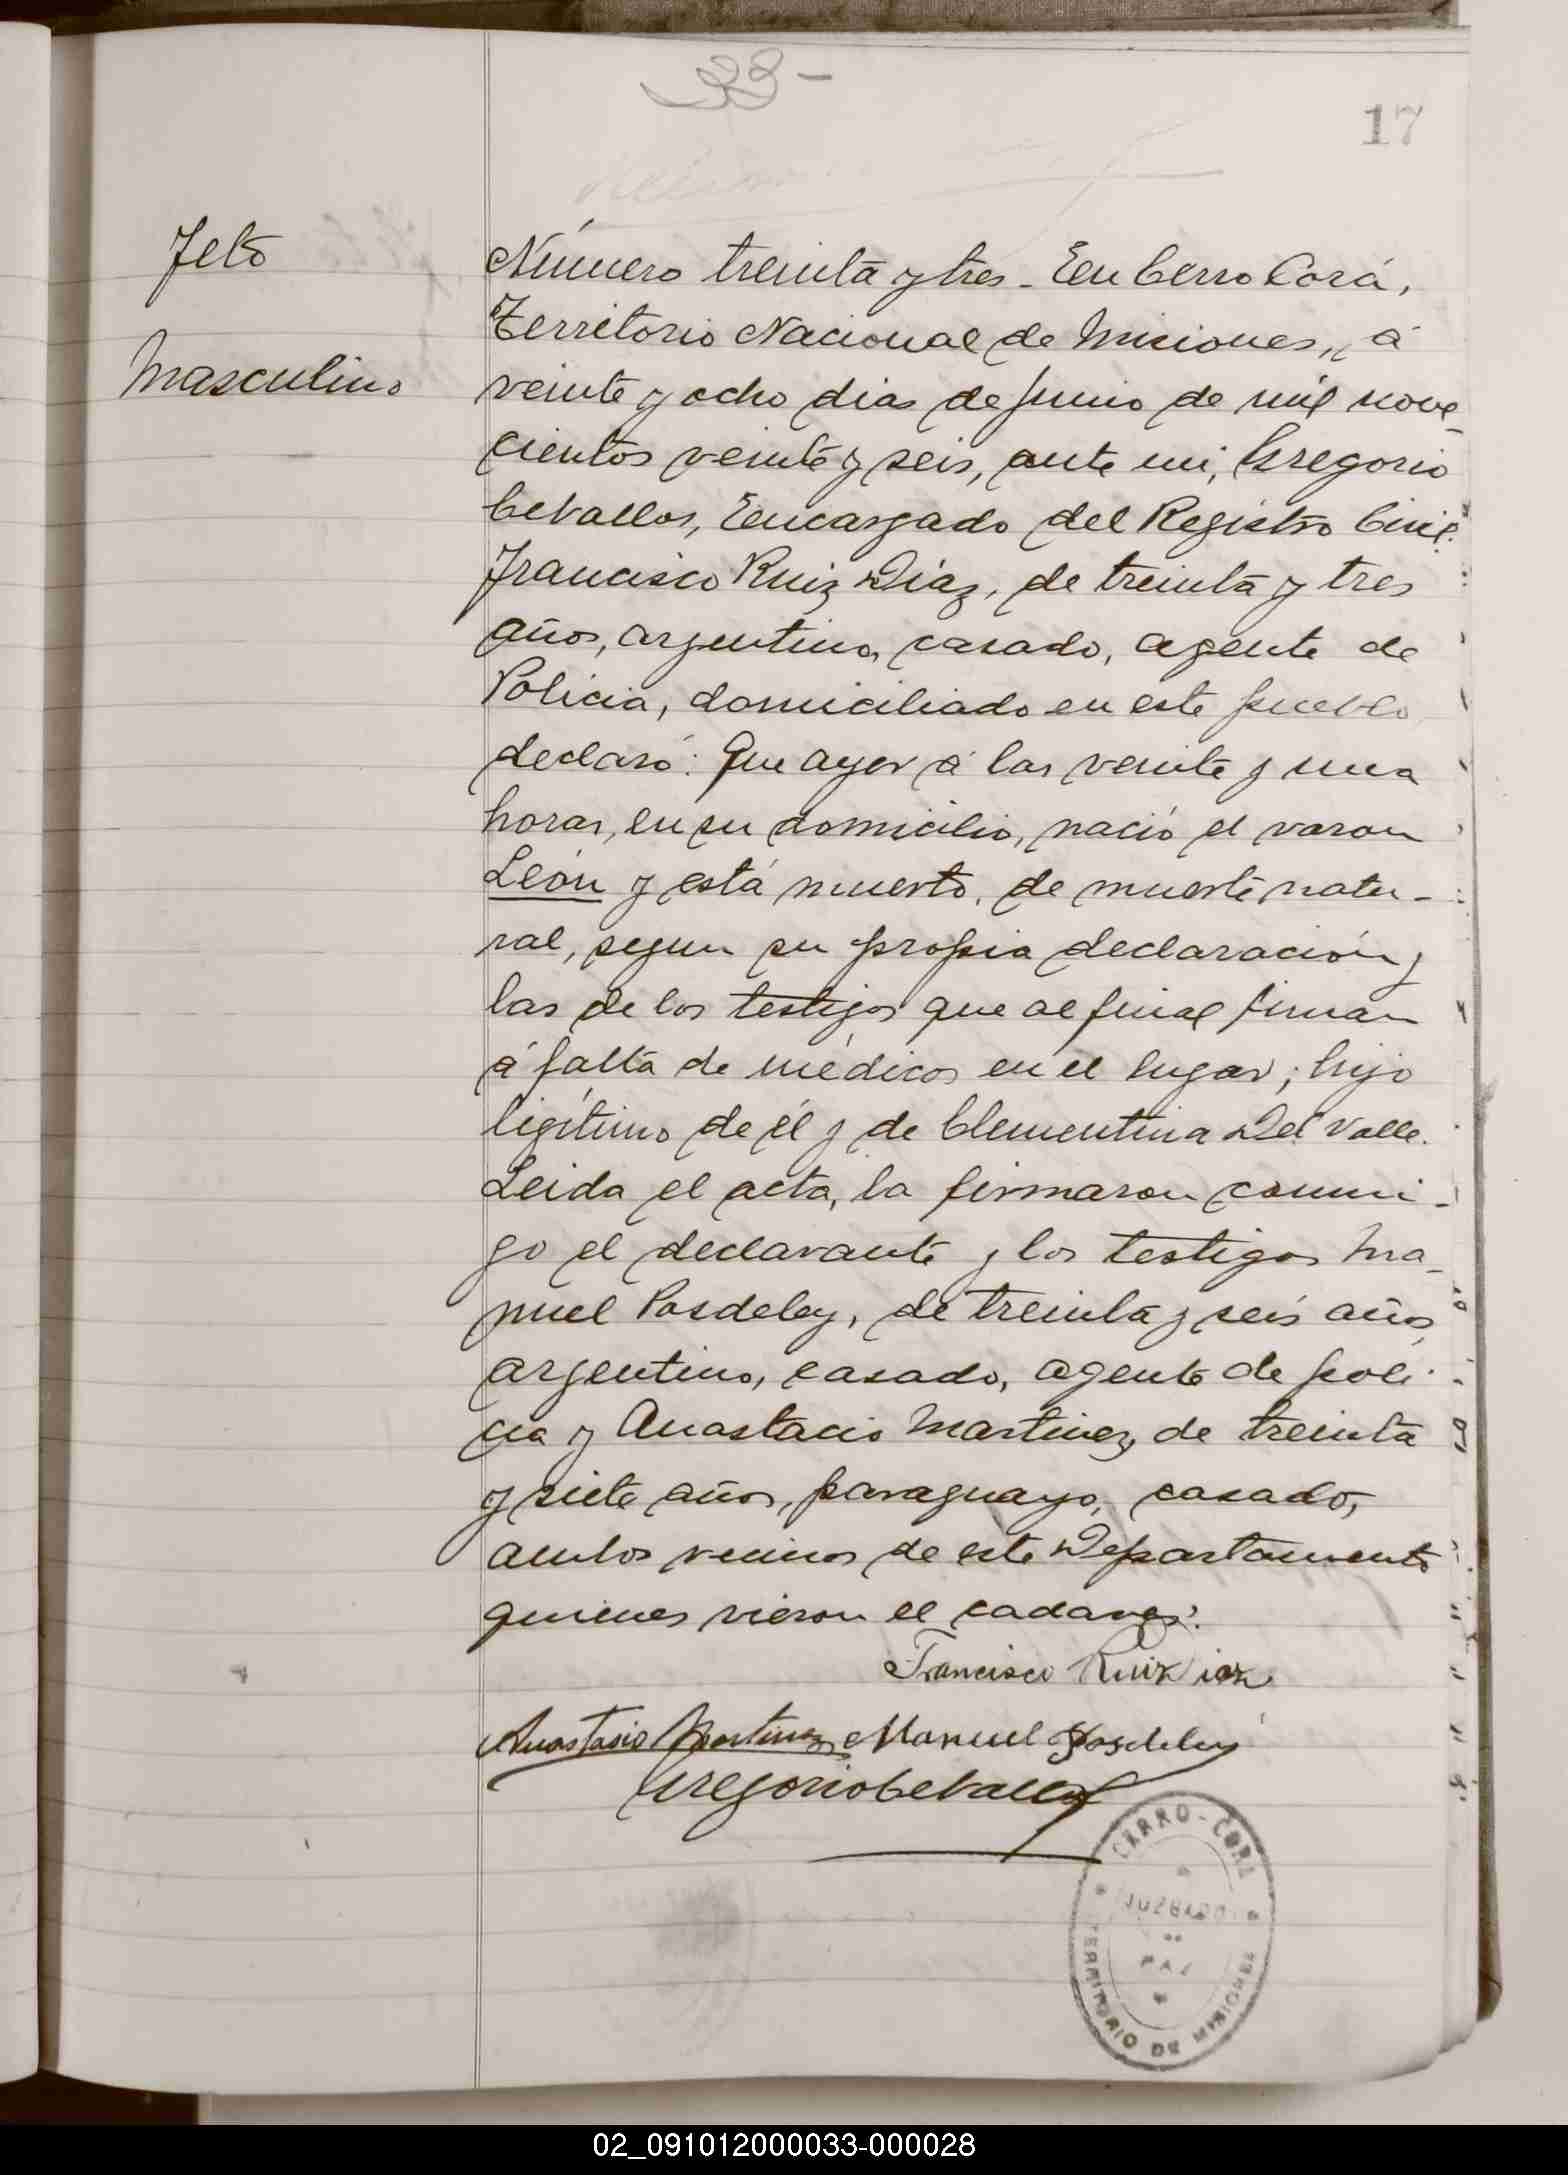 33-
17
Feto
Masculino
Número treinta y tres - En Cerro Corá,
Territorio Nacional de Misiones, á
veinte y ocho dias de Junio de mil nove-
cientos veinte y seis, ante mi, Gregorio
Ceballos, Encargado del Registro Civil.
Francisco Ruiz Diaz, de treinta y tres
años, argentino, casado, agente de
Policia, domiciliado en este pueblo
declaró: Que ayer á las veinte y una
horas, en su domicilio, nació el varon
León y está muerto, de muerte natu-
ral, segun su propia declaración y
las de los testigos que al final firman
á falta de médicos en el lugar; hijo
ligítimo de él y de Clementina Del Valle.
Leida el acta, la firmaron conmi-
go el declarante y los testigos Ma-
nuel Posdeley, de treinta y seis años,
argentino, casado, agente de poli-
cia y Anastacio Martinez, de treinta
y siete años, paraguayo, casado,
ambos vecinos de este Departamento
quienes vieron el cadaver.
Francisco Ruiz Diaz
Anastasio Martinez Manuel Posdeley
Gregorio Ceballos
CERRO-CORA
JUZGADO
DE
PAZ
TERRITORIO DE MISIONES
02_091012000033-000028